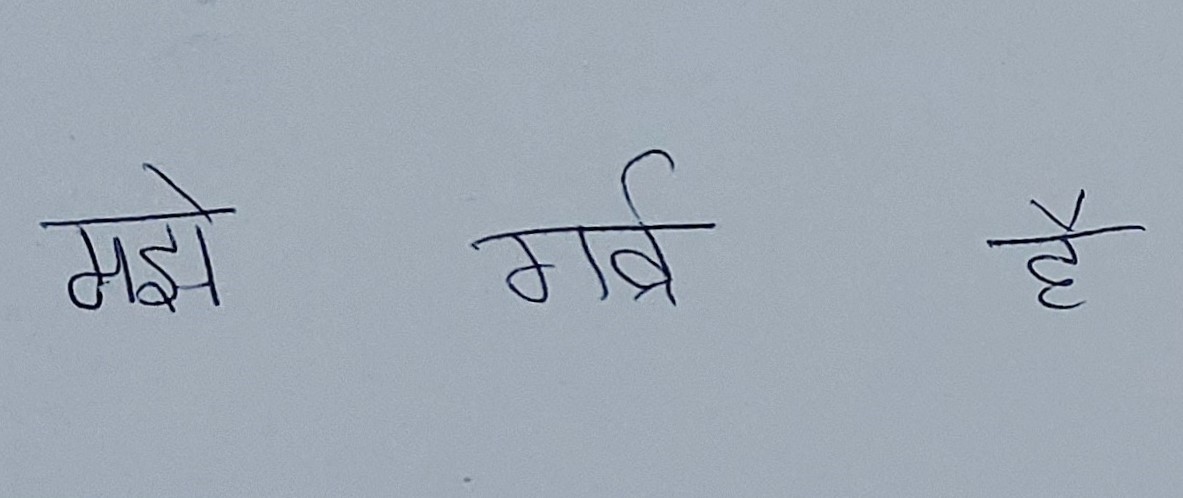 मझे गर्व्र है